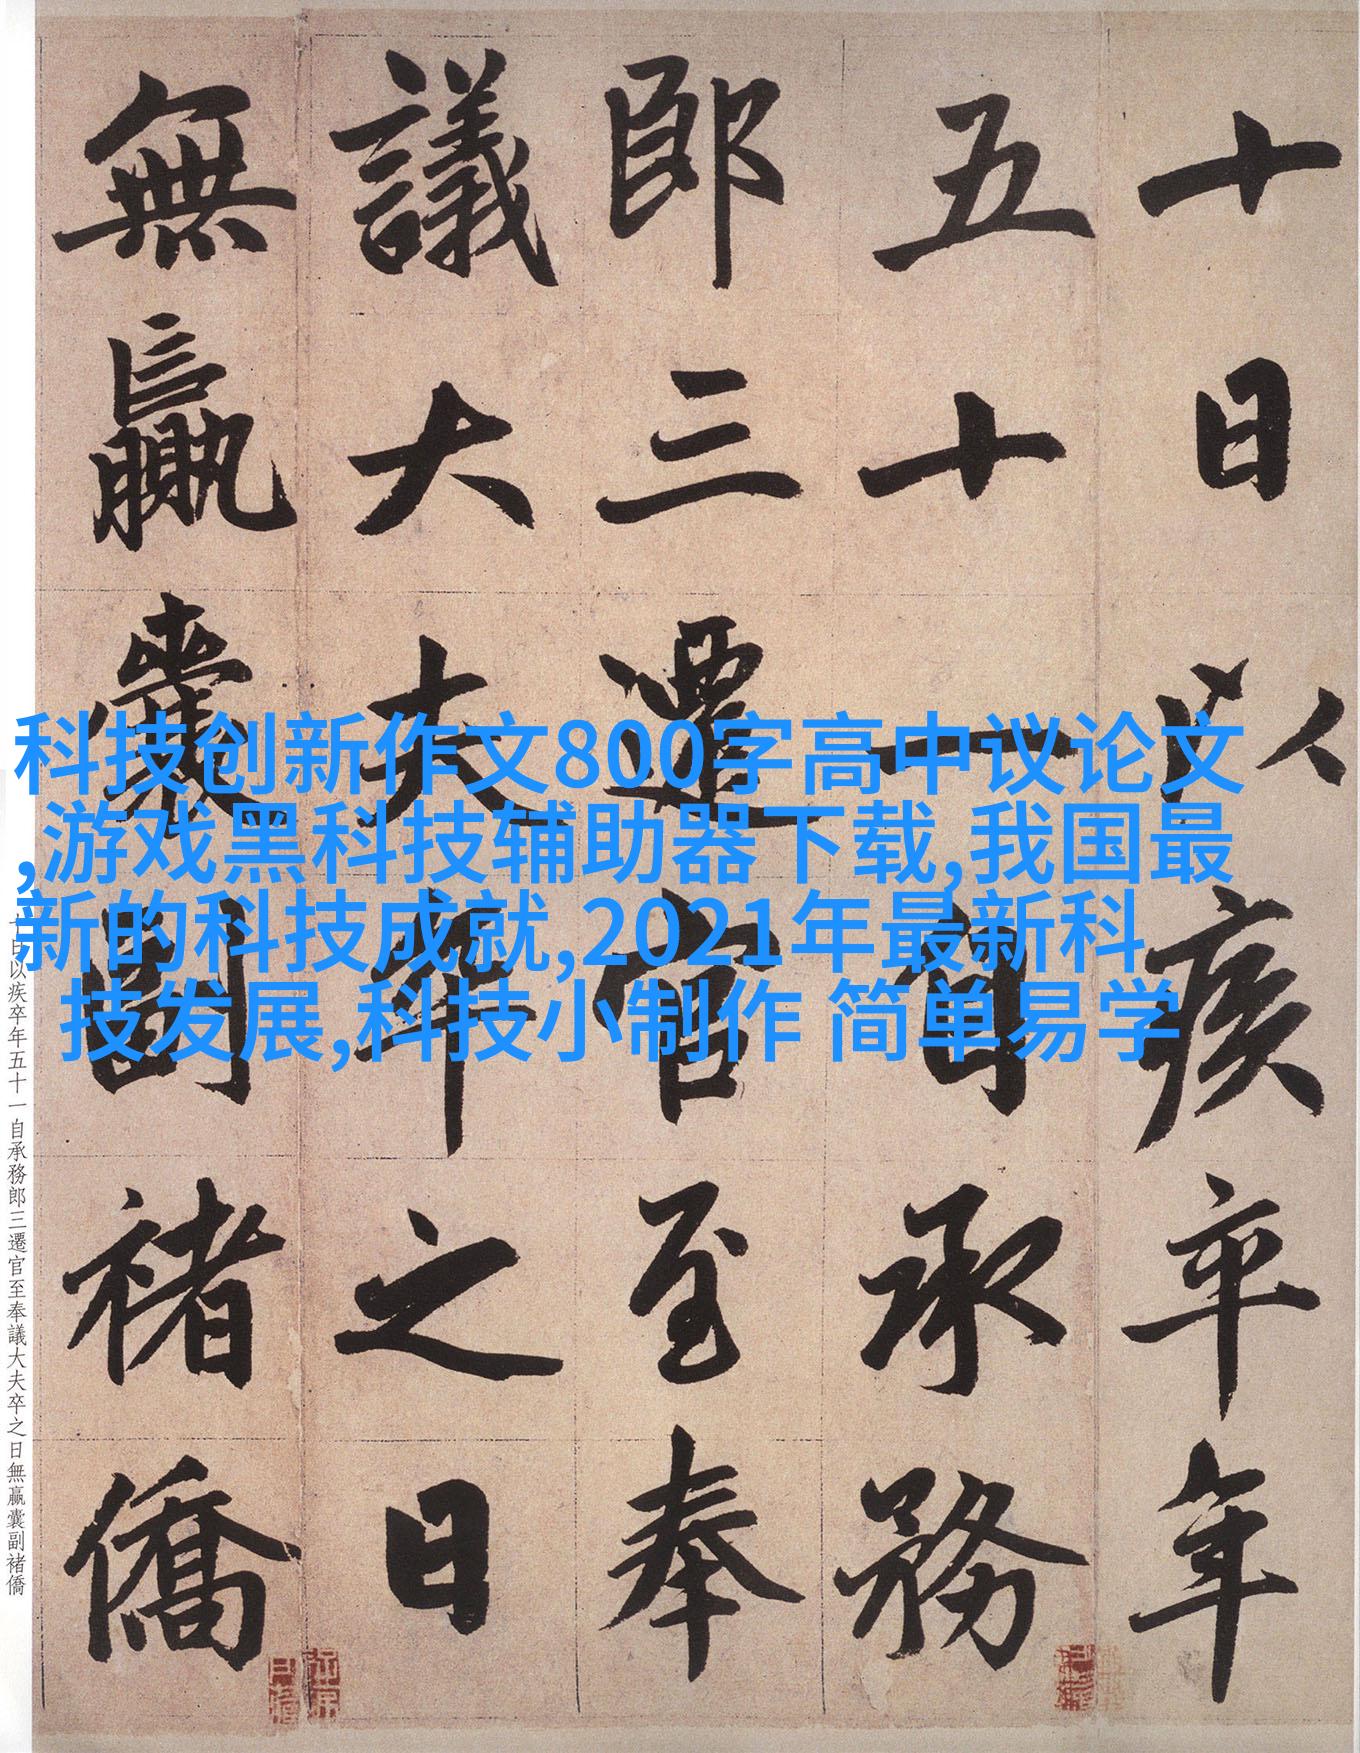 十日以疾卒年
五十一自承務
郎三遷官至奉
議大夫卒之日
無贏囊副褚僑
科技创新作文800字高中议论文
,游戏黑科技辅助器下载,我国最
新的科技成就,2021年最新科
技发展,科技小制作 简单易学
十日以疾卒年五十一自承務郎三遷官至奉議大夫卒之日無贏囊副褚僑